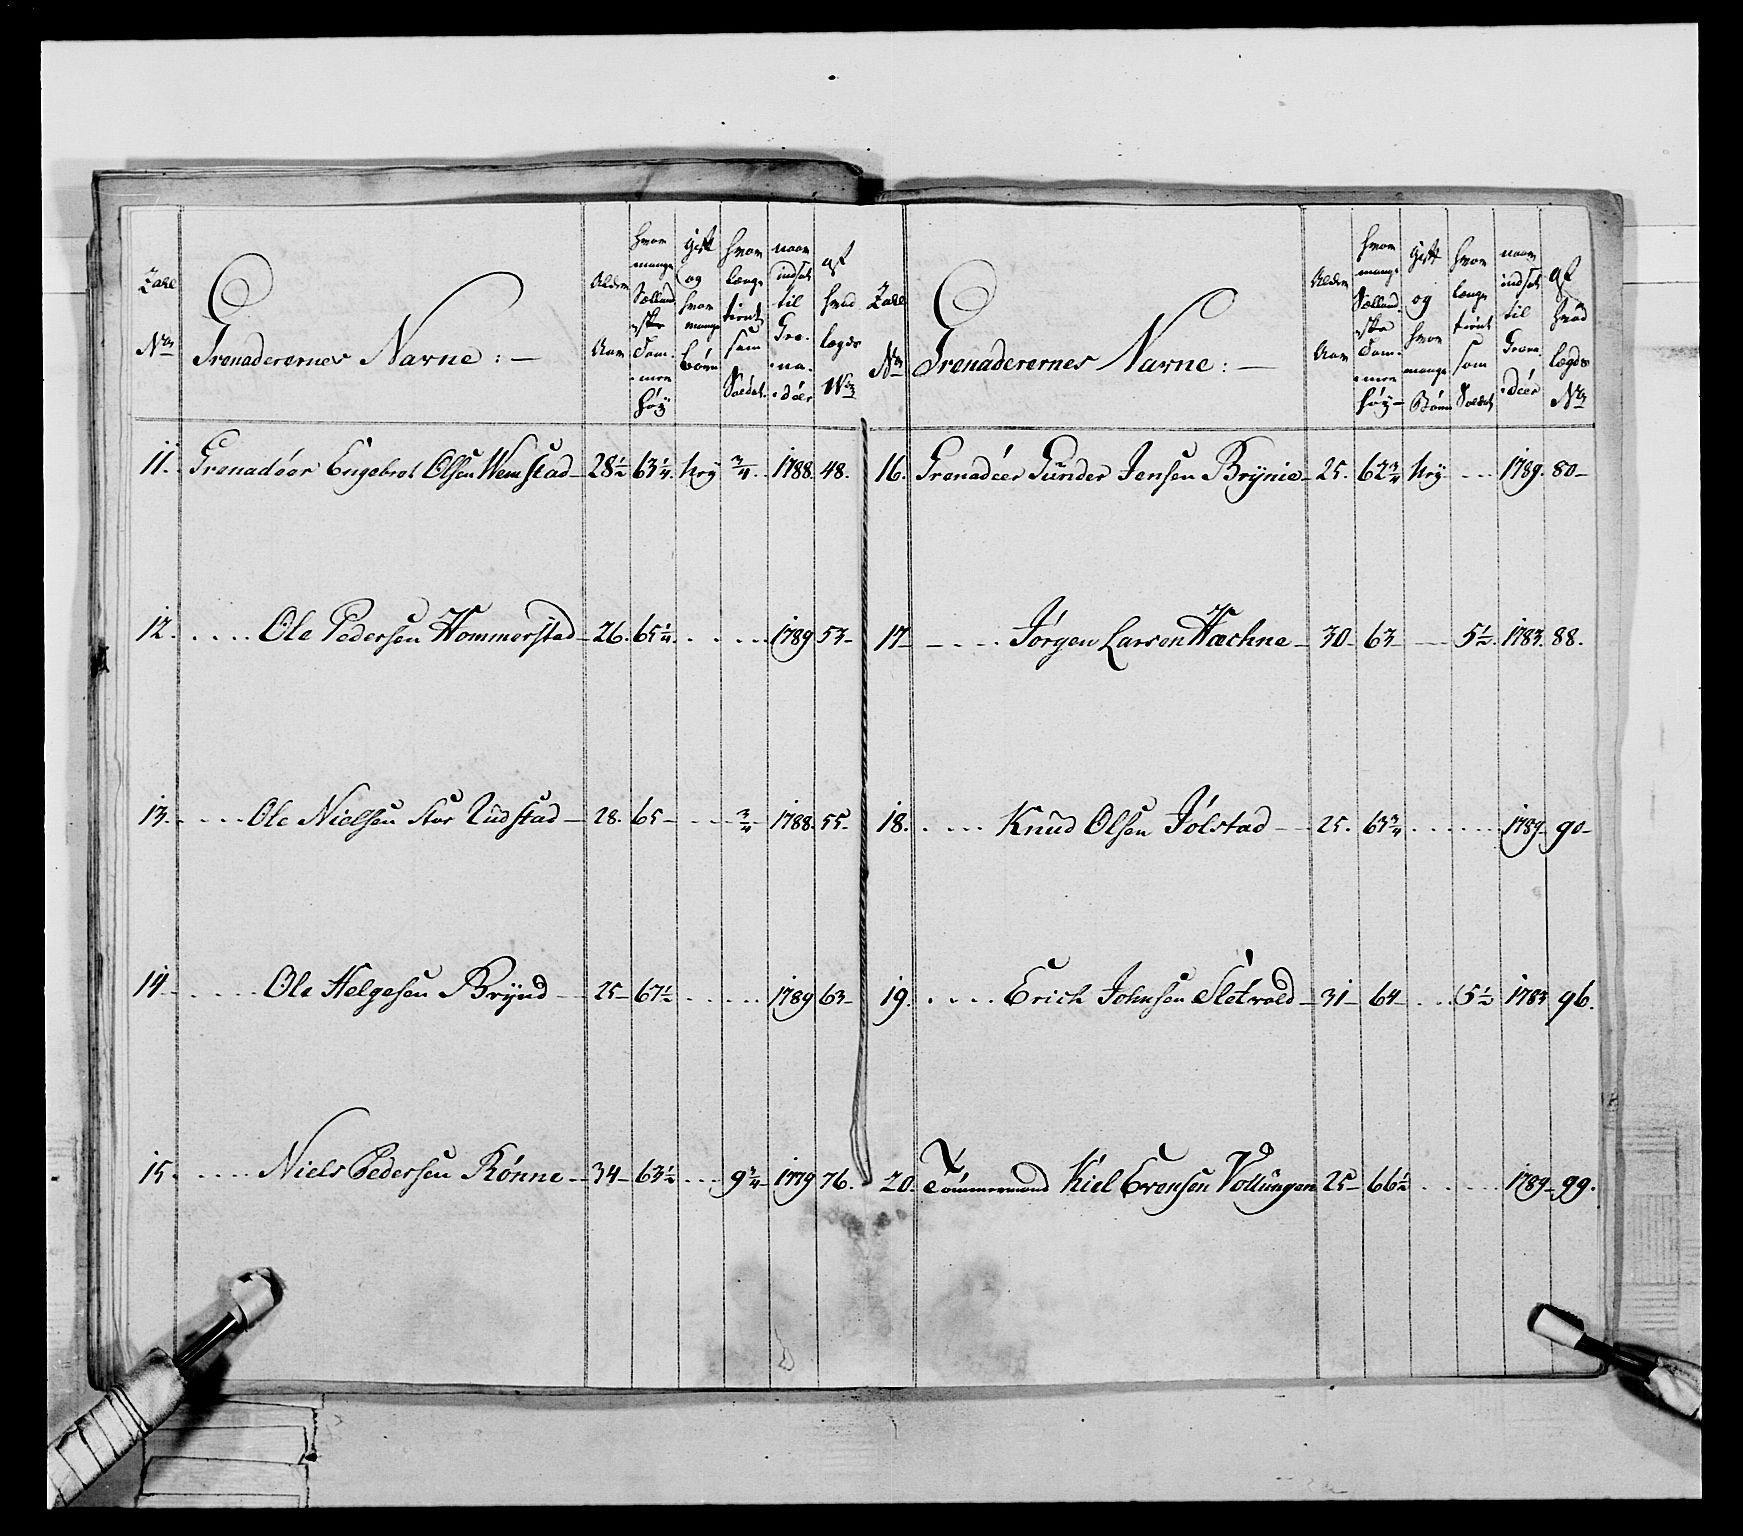 Tahl No
Grenaderernes Navne : —
Alder Aar
hvor mange Sællandske Tommer høy
gift og hvor mange børn
hvor længe tient som Soldat
naar indsat til Grenadéer
af hvad lægds No
11. Grenadéer Engebret Olsen Wem stad — 28 1/2 63 1/4. Ney 3/4. 1788. 48.
12. . . . . Ole Pedersen Hommerstad — 26. 65 1/4. . . . . 1789 53 —
13. . . . . Ole Nielsen Stor Rudstad — 28. 65 — . . 3/4 1788. 55 —
14 . . . . . Ole Helgesen Brynd — 25 — 67 1/2 . . . . . 1789 63 —
15. . . . . Niels Pedersen Rønne — 34 — 63 1/2 . . . 9 3/4 — 1779 76.
Tahl No
Grenaderernes Navne : —
Alder Aar
hvor mange Sællandske Tommer høy —
gift og hvor mange Børn
hvor længe tient som Soldat
naar indsat til Grenadéer
af hvad lægds No
16. Grenadéer Gunder Jensen Brynie — 25. 62 3/4 Ney . . . 1789. 80 —
17 — . . . . Jørgen Larsen Hæchne — 30 — 63 — . . . 5 1/2. 1783. 88.
18. . . . . Knud Olsen Jølstad — 25. 63 3/4 . . . . . . 1789 — 90 —
19. . . . . Erich Johnsen Sletvold — 31 — 64 — . . . 5 1/2 1783 96.
20. Tømmermand Kiel Evensen Vollungen 25 — 66 1/2 . . . . . 1789 — 99.